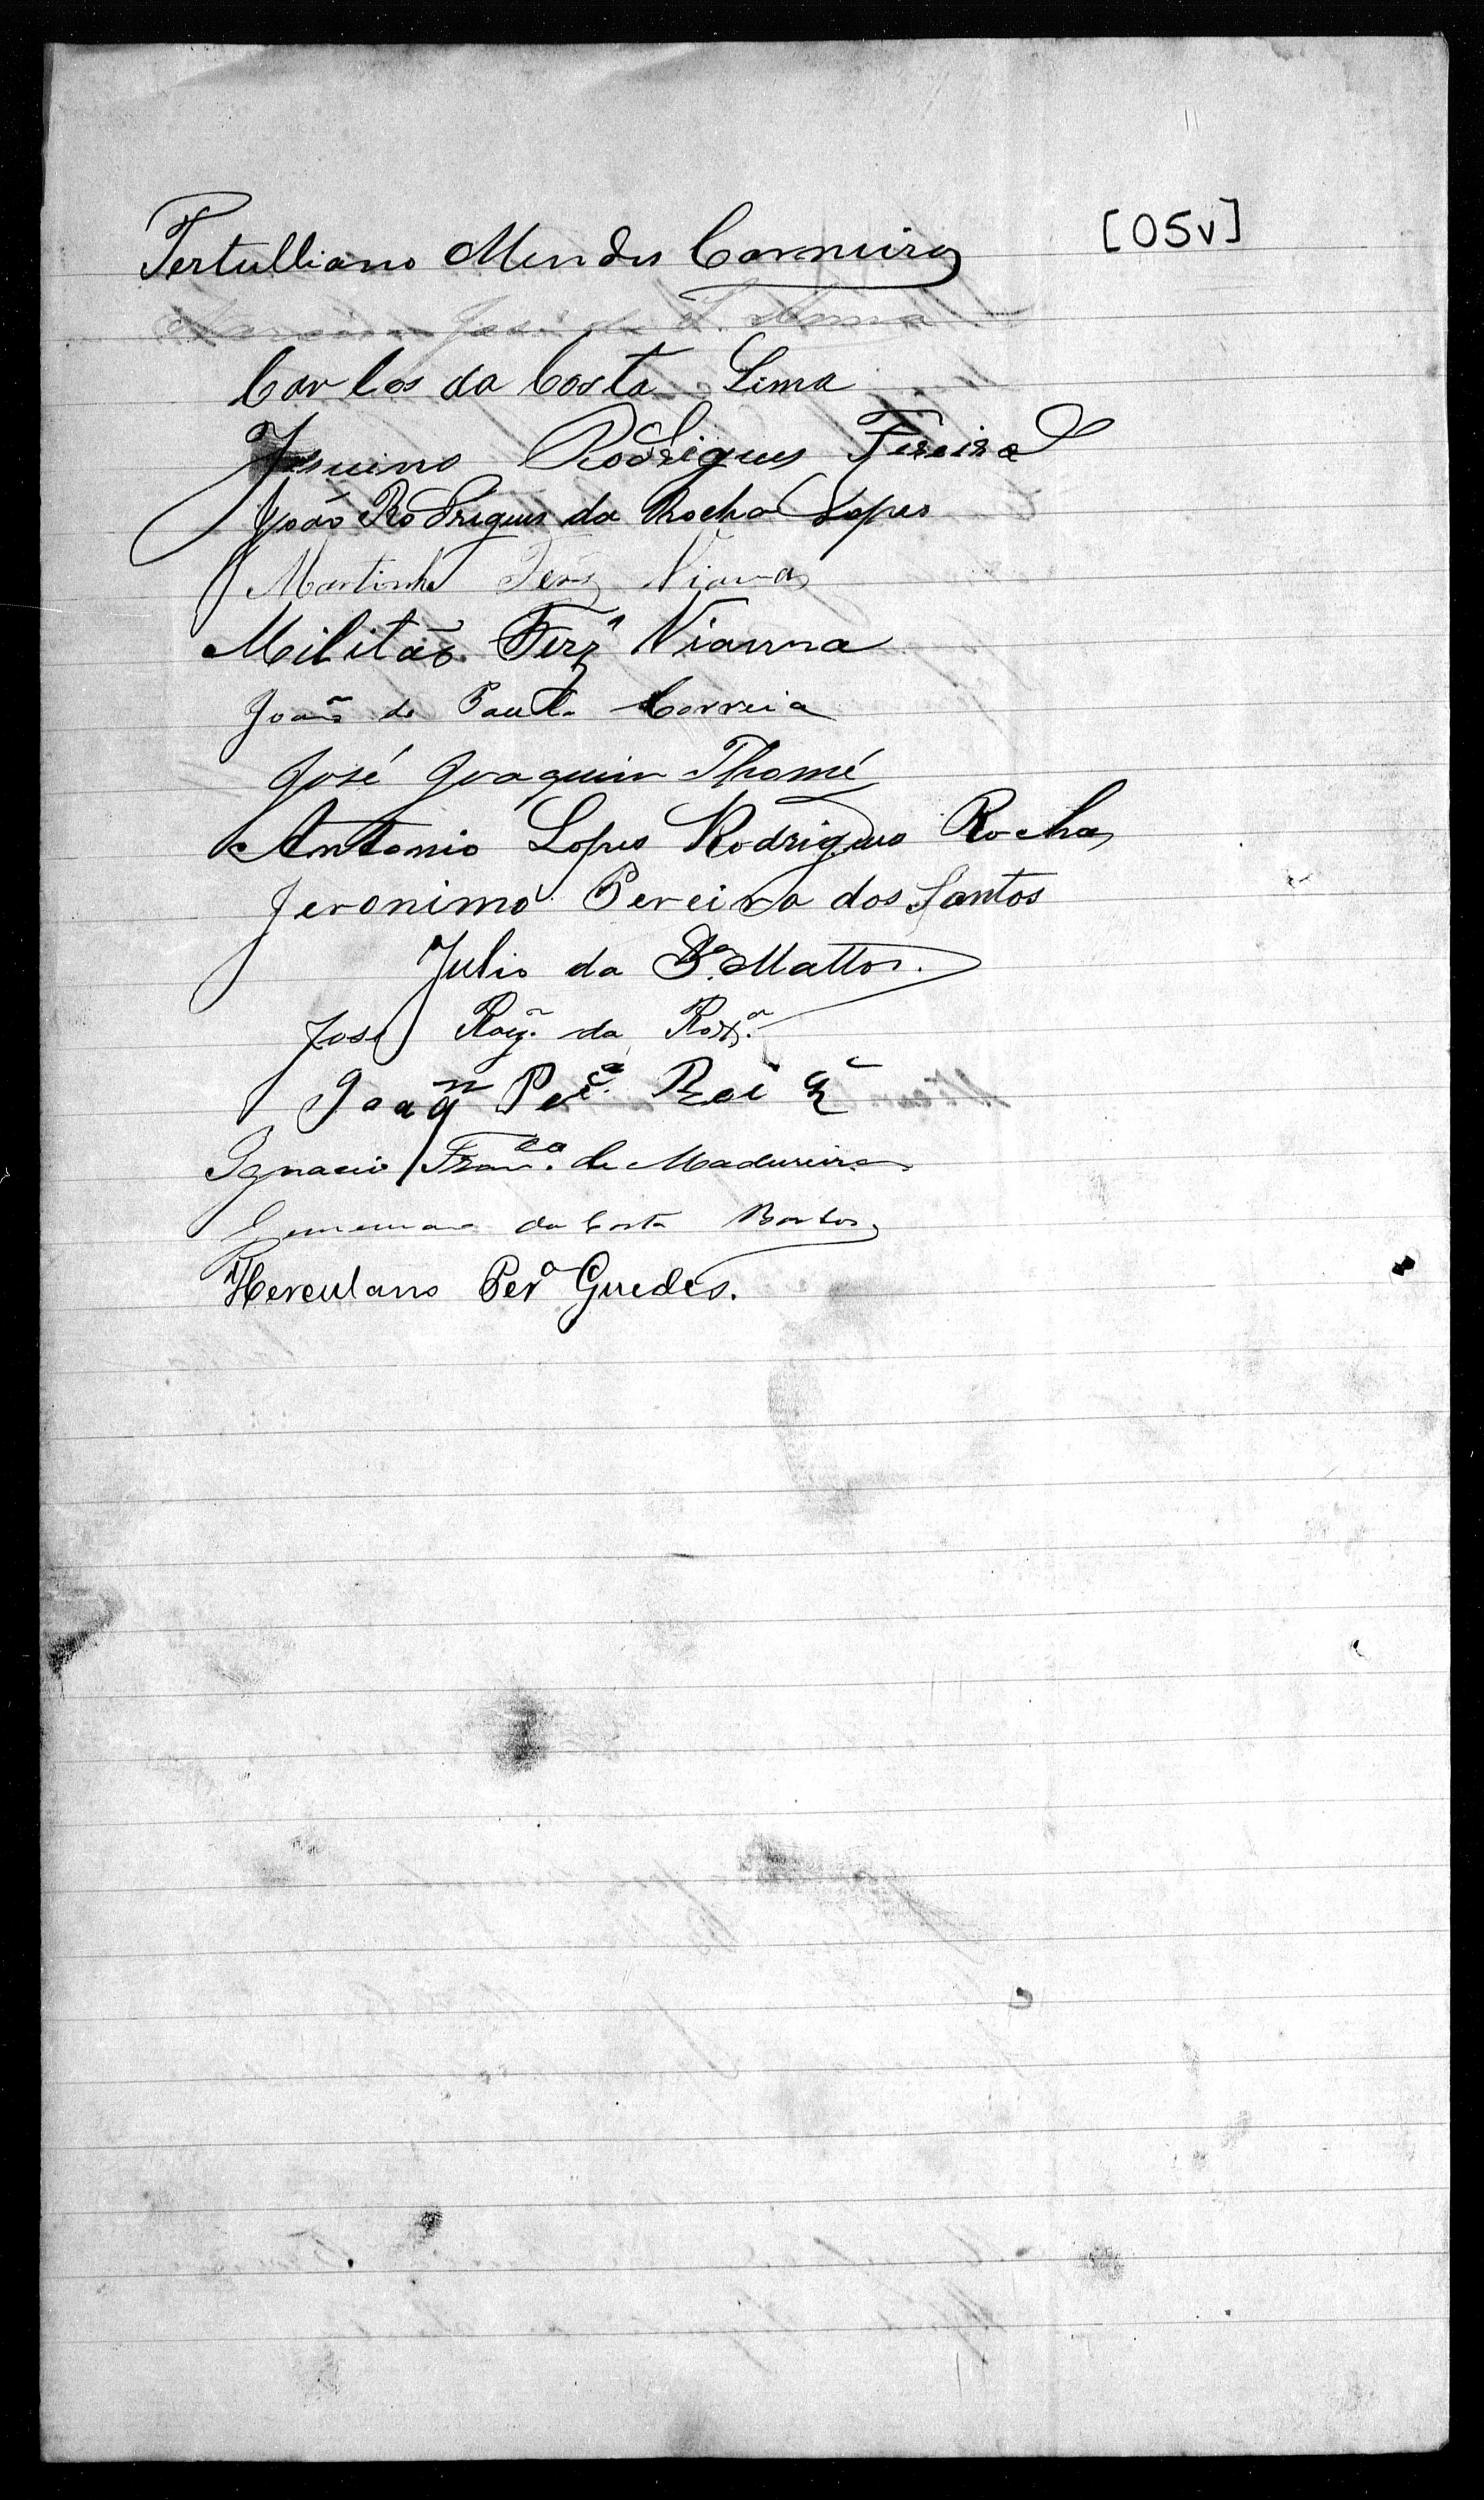 [05v]
Tertulliano Mendes Carneiro
José de S. Anna
Carlos da Costa Lima
Jesuino Rodrigues Fireira
João Rodrigues da Rocha Lopes
Martinho Ferz Viana
Militão Ferz Vianna
João de Paula Correia
José Joaquim Thomé
Antonio Lopes Rodrigues Rocha
Jeronimo Pereira dos Santos
Julio da S.ª Mattos.
José da
Joaqm Per.ª
Ignacio Franco. de Madureira
da Costa Barbosa
Herculano Pera Guedes.